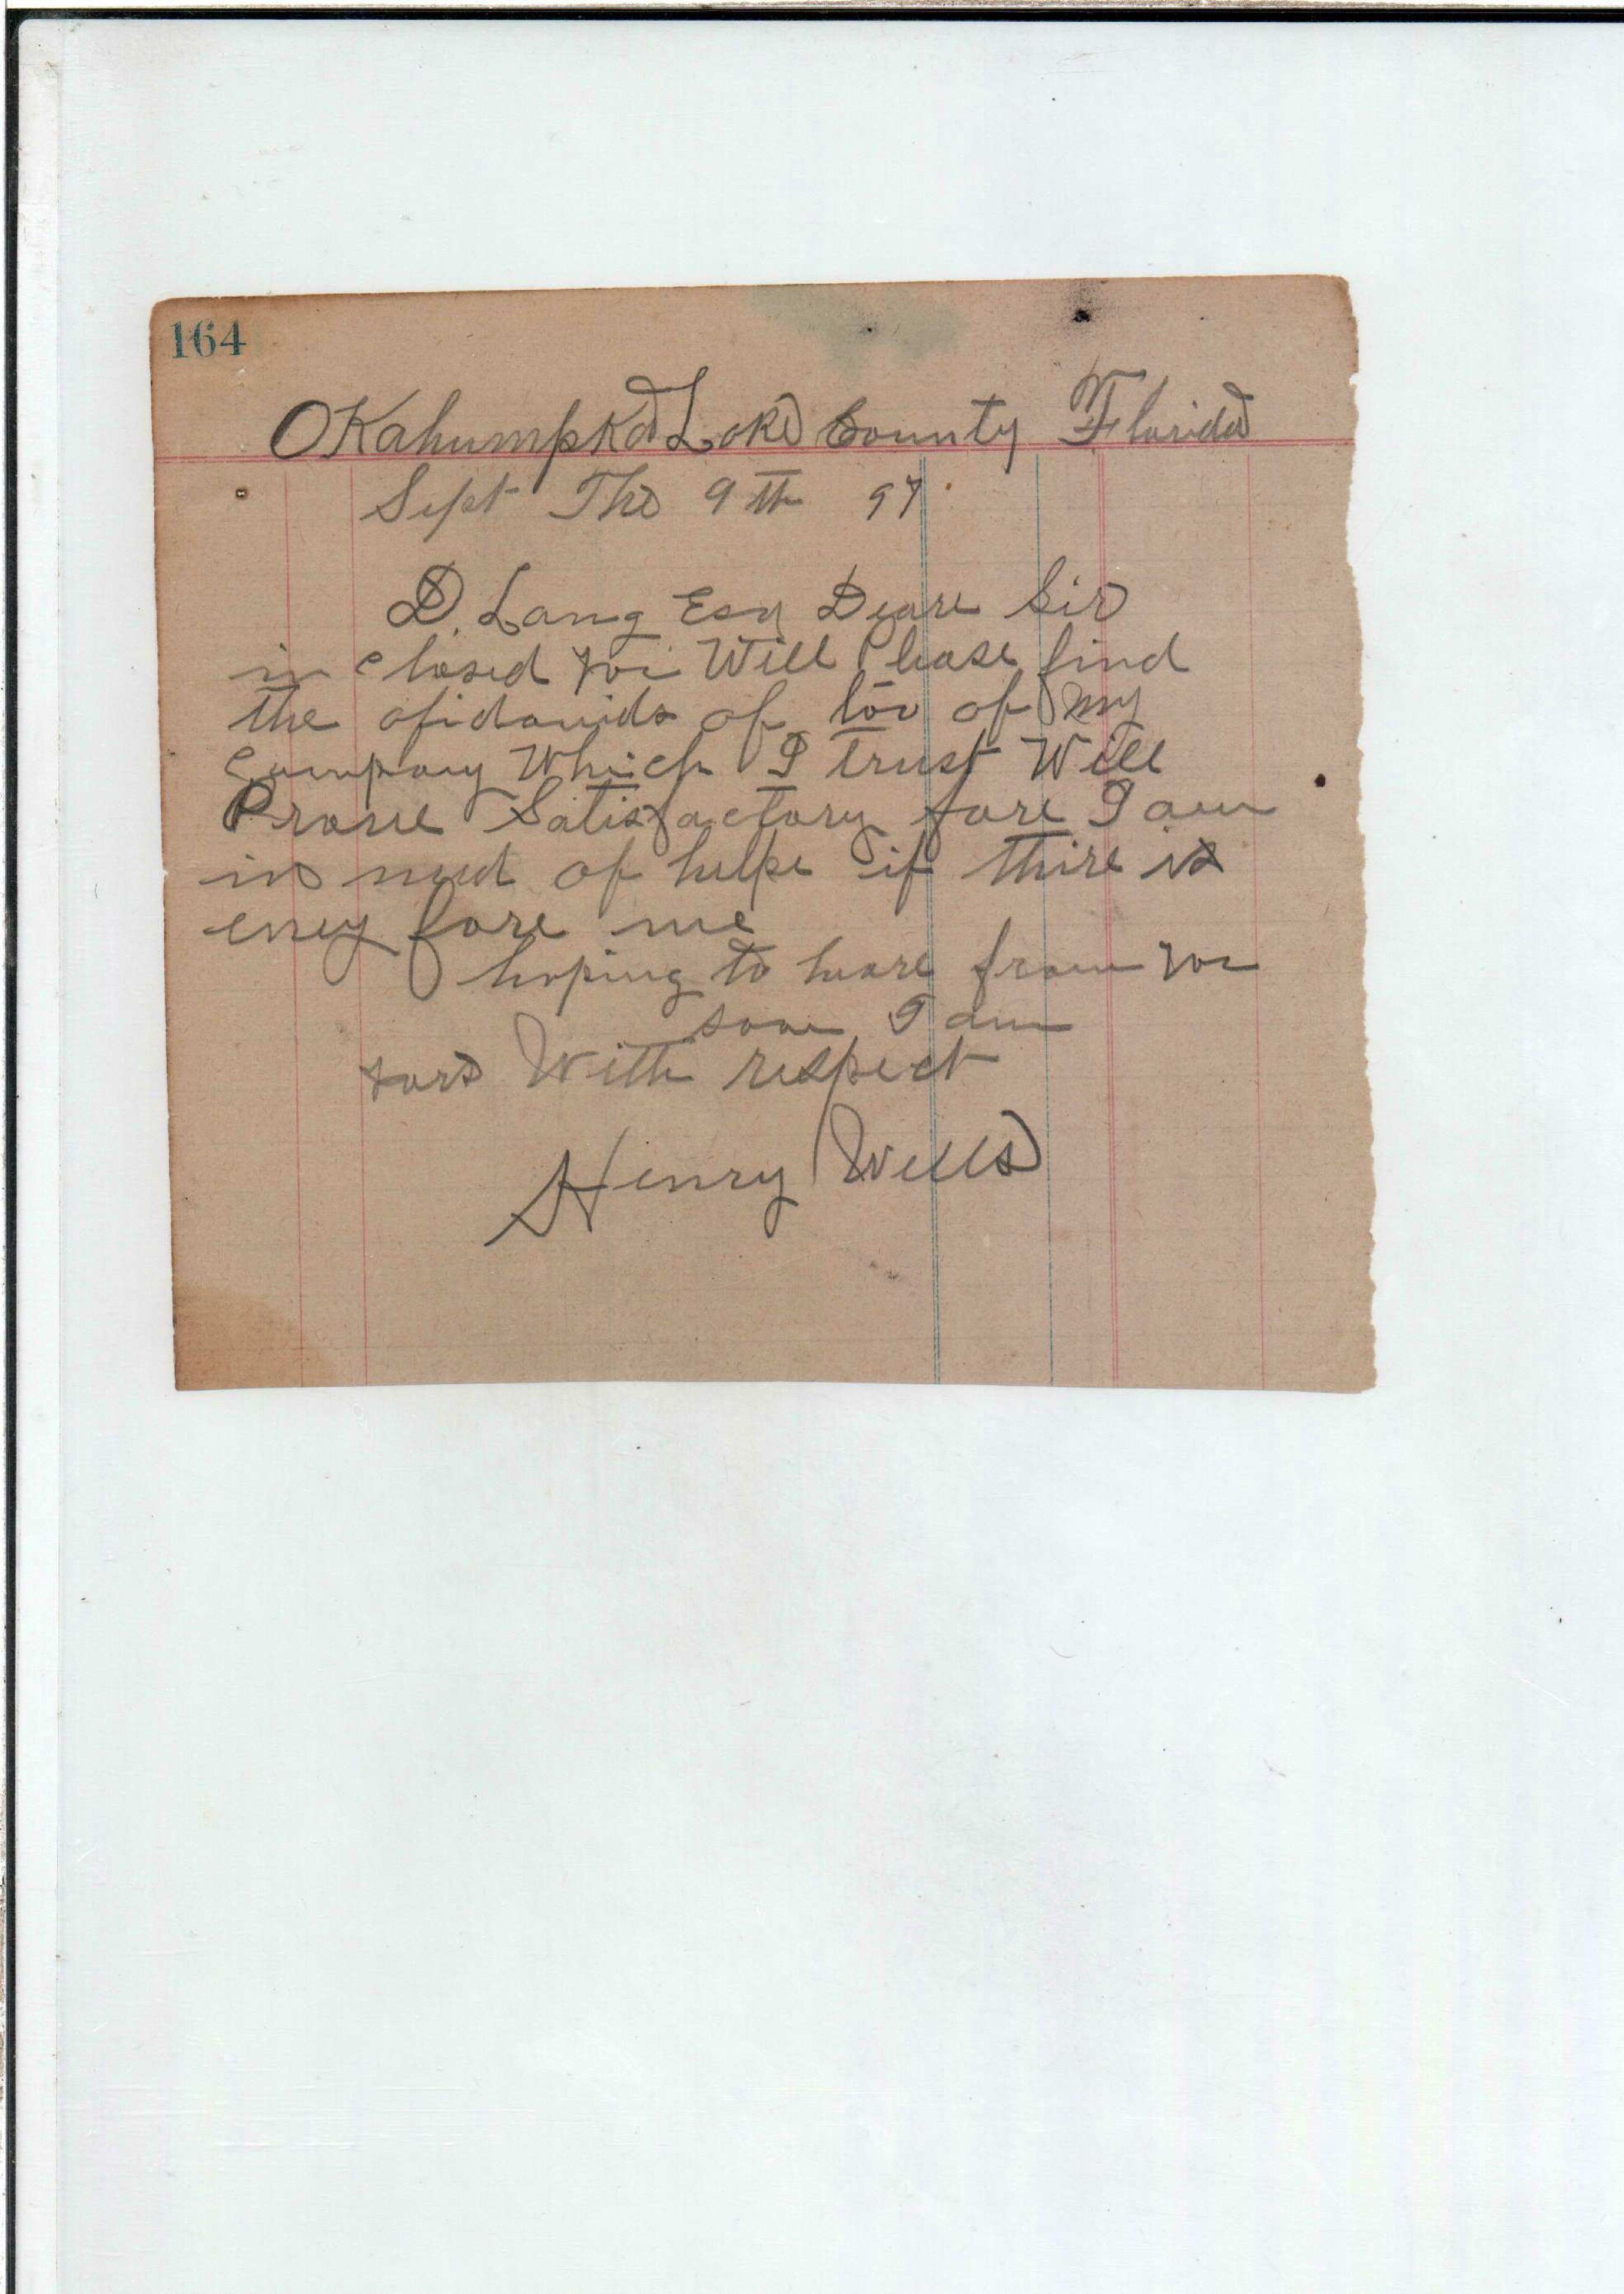 164
OKahumpka Lake County Florida
Sept The 9th 97
D. Lang Esq Deare Sir
in closed yoi Will Please find
the afidavids of tov of my
Company Which I trust Will
Prove Satisfactory fore I am
in need of helpe if thire is
eney fore me
hoping to heare from you
soon I am
yors With respect
Henry Wells